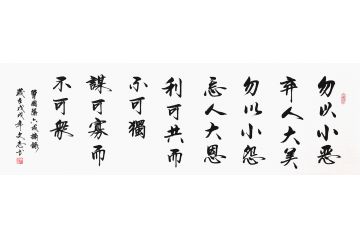 勿以小恶
弃人大美
勿以小怨
忘人大恩
利可共而
不可獨
謀可寡而
不可衆
曾國藩六戒摘錄
歲在戊戌年文忠書